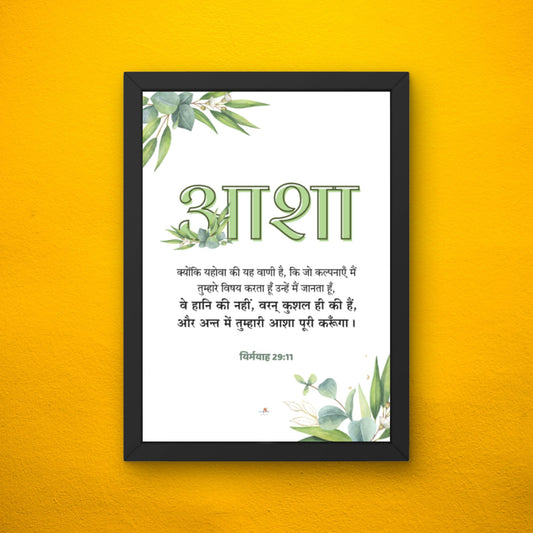 आशा
क्योंकि यहोवा की यह वाणी है, कि जो कल्पनाएँ मैं
तुम्हारे विषय करता हूँ उन्हें मैं जानता हूँ,
वे हानि की नहीं, वरन् कुशल ही की हैं,
और अन्त में तुम्हारी आशा पूरी करूँगा।
यिर्मयाह 29:11